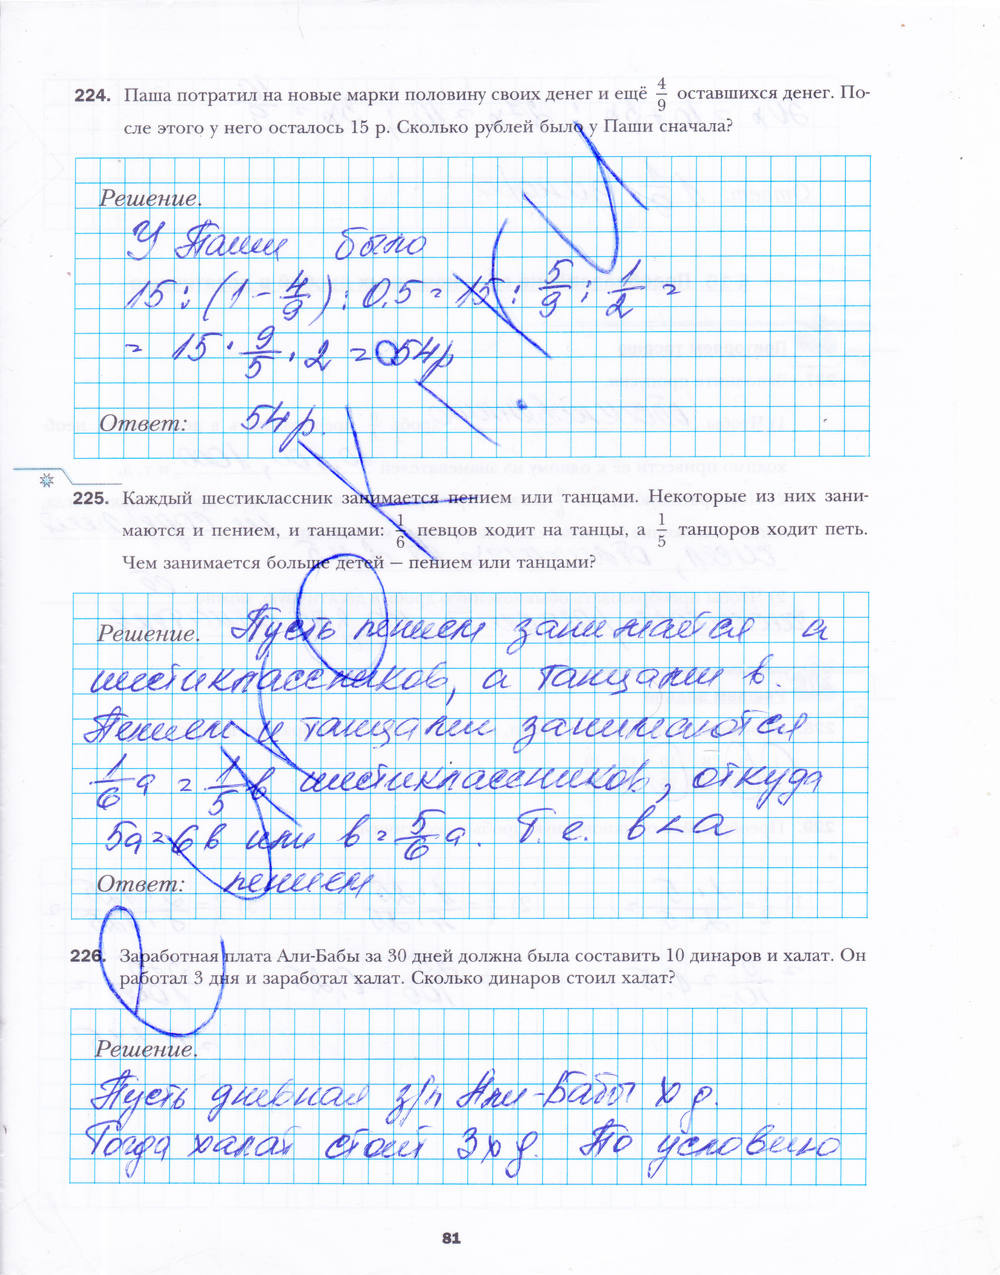 224. Паша потратил на новые марки половину своих денег и ещё 4/9 оставшихся денег. По-
сле этого у него осталось 15 р. Сколько рублей было у Паши сначала?
Решение.
У Паши было
15 : (1 - 4/9) : 0.5 = 15 : 5/9 : 1/2 =
= 15 · 9/5 · 2 = 54 р
Ответ: 54 р.
225. Каждый шестиклассник занимается пением или танцами. Некоторые из них зани-
маются и пением, и танцами: 1/6 певцов ходит на танцы, а 1/5 танцоров ходит петь.
Чем занимается больше детей — пением или танцами?
Решение. Пусть пением занимается a
шестиклассников, а танцами в.
Пением и танцами занимаются
1/6 a = 1/5 в шестиклассников, откуда
5a = 6в или в = 5/6 a. Т.е. в < a
Ответ: пением
226. Заработная плата Али-Бабы за 30 дней должна была составить 10 динаров и халат. Он
работал 3 дня и заработал халат. Сколько динаров стоил халат?
Решение.
Пусть дневная з/п Али-Бабы x д.
Тогда халат стоит 3x д. По условию
81